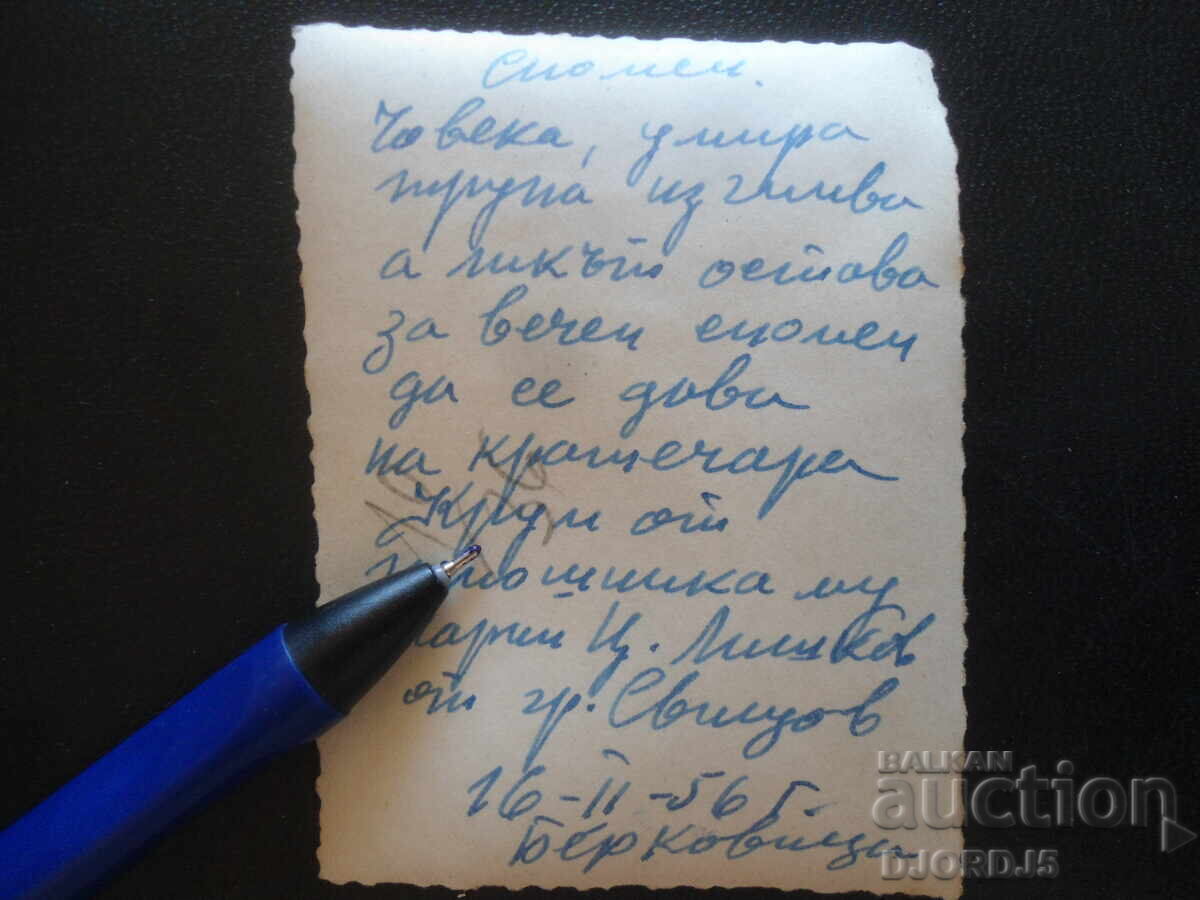 Спомен.
Човека, умира
трупа изгнива
а ликът остава
за вечен спомен
да се дава
на
Крум от
му
Ц.
от гр. Свищов
16-II-56 г.
Берковица
BALKAN
auction
DJORDJ5